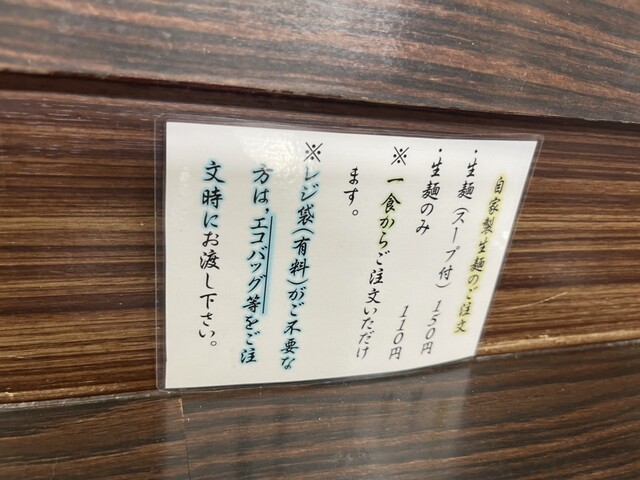 自家製生麺のご注文
・生麺（スープ付）150円
・生麺のみ 110円
※一食からご注文いただけ
ます。
※レジ袋（有料）がご不要な
方は、エコバッグ等をご注
文時にお渡し下さい。